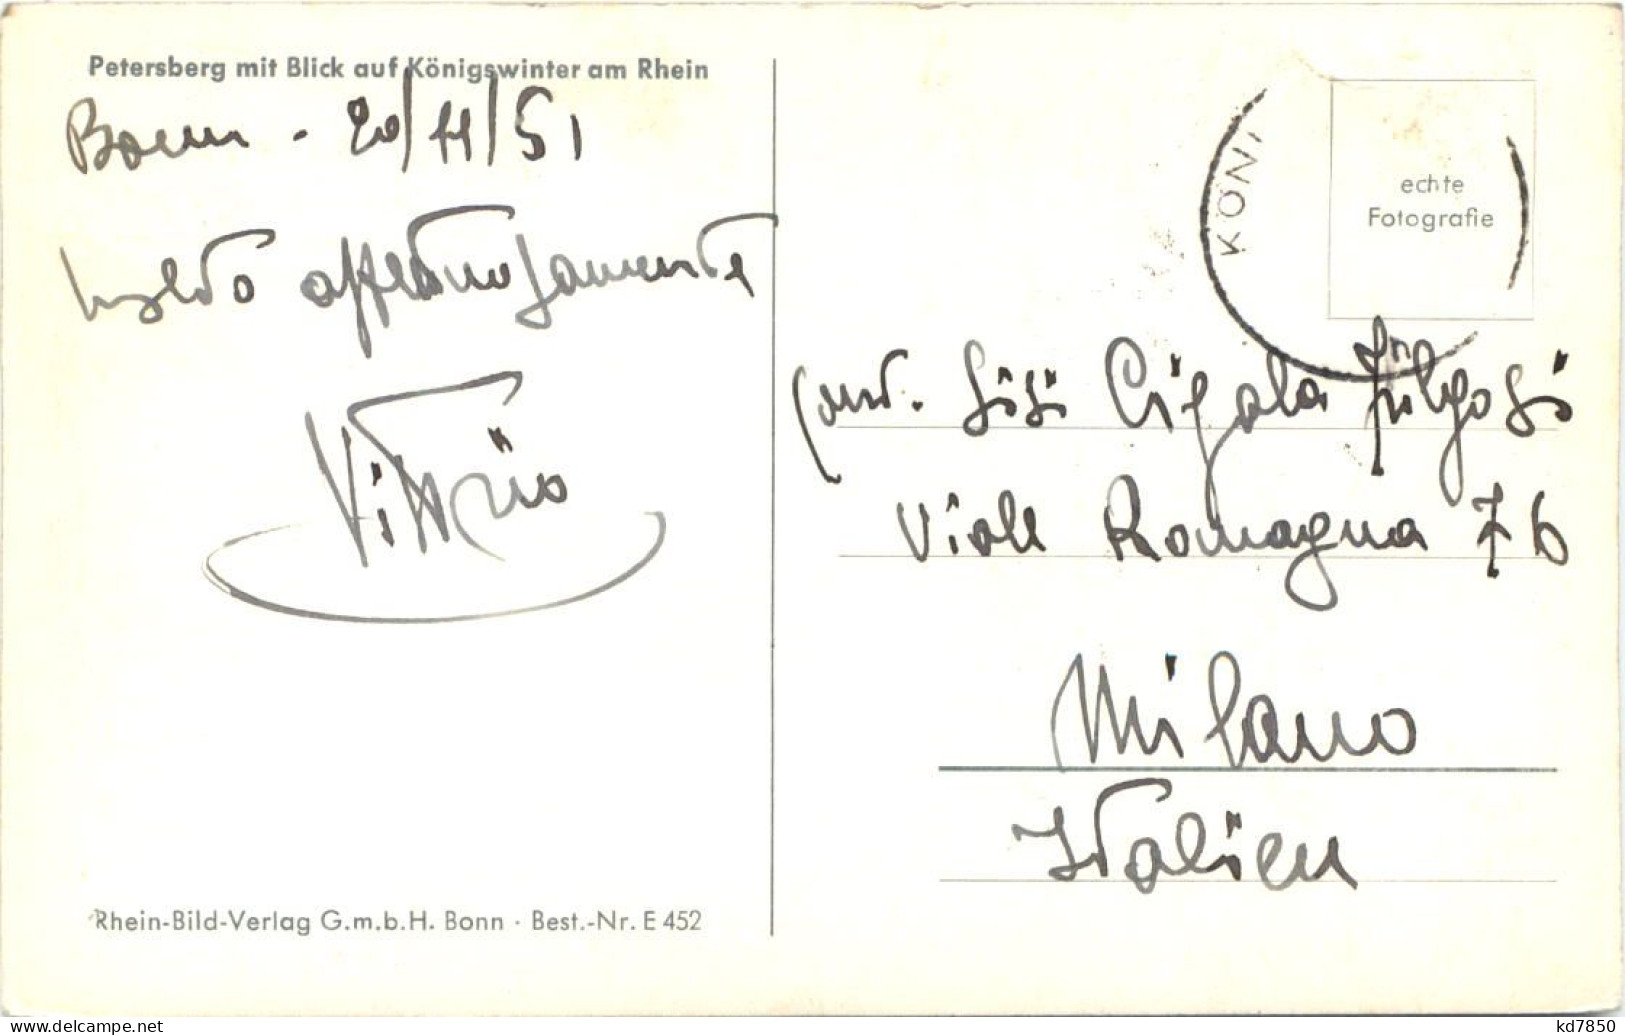 Petersberg mit Blick auf Königswinter am Rhein
Bonn - 20/11/51
affettuosamente
Vittorio
Rhein-Bild-Verlag G.m.b.H. Bonn · Best.-Nr. E 452
KÖNI
echte
Fotografie
Cont. Sisi Cigala Fulgosi
Viale Romagna 76
Milano
Italien
kd7850